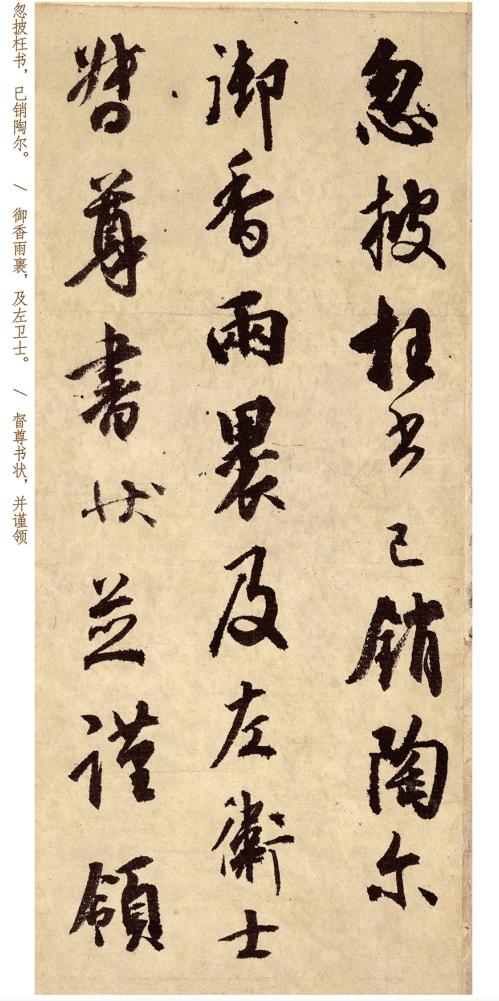 忽披枉书已銷陶尔
御香雨裹及左衛士
督尊書状並謹領
忽披枉书，已销陶尔。 / 御香雨裹，及左卫士。 / 督尊书状，并谨领